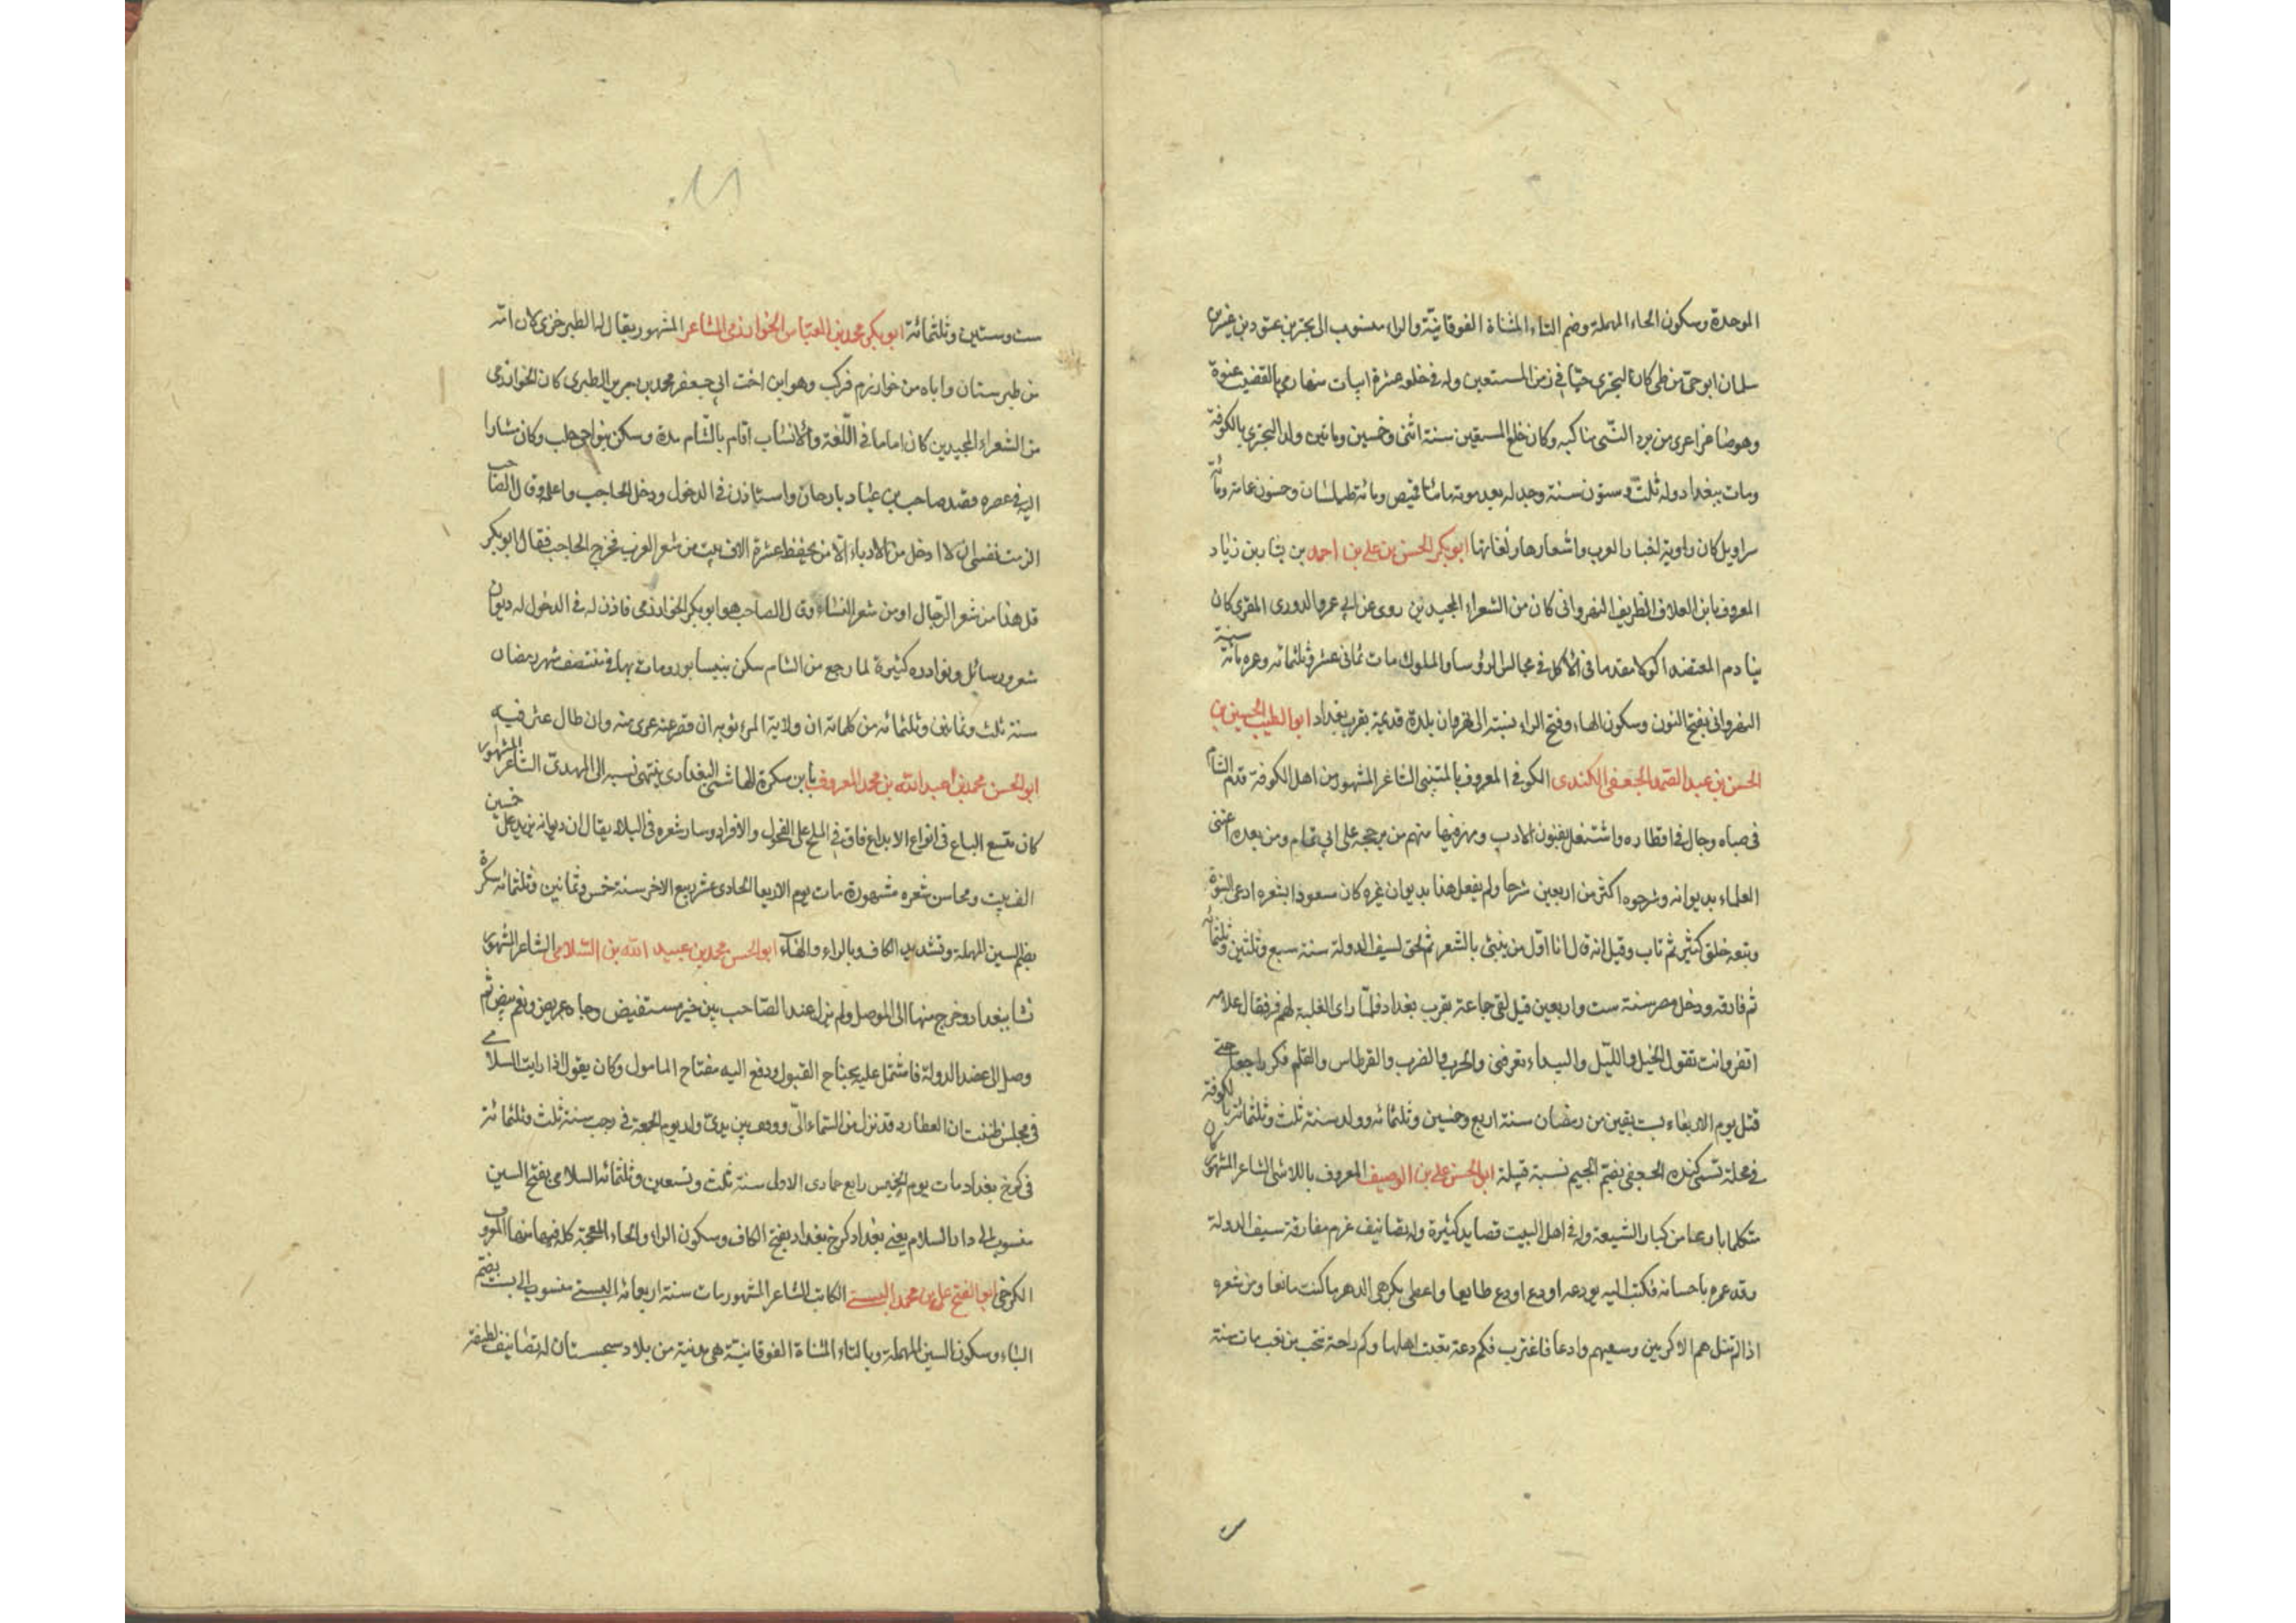 الموحدة وسكون الحاء المهملة وضم التاء المثناة الفوقانيّة والراء منسوب الى بحتر بن عتود بن عنيز بن
سلمان ابو حىّ من طى كان البحترى حيّا فى زمن المستعين وله فى خلعه عشرة ابيات منها رمى بالقضيب عنوة
وهو صاغر اعرى من برد النّبى مناكبه وكان خلع المستعين سنة اثنى وخمسين وماتين ولد البحترى بالكوفة
ومات ببغداد وله ثلث وستون سنة وجد له بعد موته مائتا قميص ومائة طيلسان وخمسون عامة ومائة
سراويل كان راوية لاخبار العرب واشعارها ولغاتها ابو بكر الحسن بن على بن احمد بن بشار بن زياد
المعروف بابن العلاف الظريف النهروانى كان من الشعراء المجيدين روى عن ابى عمرو الدورى المقرى كان
ينادم المعتضد اكولا مقدما فى الأكل فى مجالس الرؤسا والملوك مات ثمانى عشر وثلثمائه وعمره مائة سنة
النهروانى بفتح النون وسكون الهاء وفتح الراء نسبته الى نهروان بلدة قديمة بقرب بغداد ابو الطيب الحسين بن
الحسن بن عبد الصمد الجعفى الكندى الكوفى المعروف بالمتنبى الشاعر المشهور من اهل الكوفة قدم الشام
فى صباه وجال فى اقطاره واشتغل بفنون الادب ومهر فيها منهم من يرجحه على ابى تمام ومن بعده اعتنى
العلماء بديوانه وشرحوه اكثر من اربعين شرحا ولم يفعل هذا بديوان غيره كان مسعودا بشعره ادعى النبوة
وتبعه خلق كثير ثم تاب وقيل انه قال انا اوّل من ينبئ بالشعر ثم لحق لسيف الدولة سنة سبع وثلثين وثلثمائه
ثم فارقه ودخل مصر سنة ست واربعين قيل لقى جماعة بقرب بغداد فلمّا راى الغلبة لهم فر فقال غلامه
اتفر وانت تقول الخيل والليّل والبيداء تعرفنى والحرب والضرب والقرطاس والقلم فكر راجعا حتى
قتل يوم الاربعاء لست بقين من رمضان سنة اربع وخمسين وثلثمائه وولد سنة ثلث وثلثمائة بالكوفة
فى محلة تسمى كندة الجعفى بضم الجيم نسبة قبيلة ابو الحسن على بن الوصيف المعروف باللاشى الشاعر المشهور كان
متكلما بارعا من كبار الشيعة وله فى اهل البيت قصايد كثيرة وله تصانيف عزم مفارقة سيف الدولة
وقد غمره باحسانه فكتب اليه يودعه اودع اودع طايعا واعطى بكرهى الدهر ما كنت مانعا ومن شعره
اذا لم تنل همم الاكرمين وسعيهم وادعا فاغترب فكم دعة تعبت اهلها وكم راحة نتجت من تعب مات سنة
ست وستين وثلثمائة ابو بكر محمد بن العبّاس الخوارزمى الشاعر المشهور يقال له الطبرخزى كان امّه
من طبرستان واباه من خوارزم فركب وهو ابن اخت ابى جعفر محمد بن جرير الطبرى كان الخوارزمى
من الشعراء المجيدين كان اماما فى اللّغة والانساب اقام بالشام مدة وسكن بنواحى حلب وكان مشارا
اليه فى عصره قصد صاحب بن عباد بارجان واستاذن فى الدخول ودخل الحاجب واعلم وقال الصاحب
الزمت نفسى ان لا ادخل من الادباء الّا من يحفظ عشرة الاف بيت من شعر العرب فخرج الحاجب فقال ابو بكر
قل هذا من شعر الرجال او من شعر النساء وقال الصاحب هو ابو بكر الخوارزمى فاذن له فى الدخول له ديوان
شعر ورسائل ونوادره كثيرة لما رجع من الشام سكن بنيسابور ومات بها فى منتصف شهر رمضان
سنة ثلث وثمانين وثلثمائه من كلماته ان ولاية المرء ثوبه ان قصر عنه عرى منه وان طال عثر فيه
ابو الحسن محمد بن عبد الله بن محمد المعروف بابن سكرة الهاشمى البغدادى ينتهى نسبه الى المهدىّ الشاعر المشهور
كان متسع الباع فى انواع الابداع فاق فى الملح على الفحول والافراد وسار شعره فى البلاد يقال ان ديوانه يزيد على خمسين
الف بيت ومحاسن شعره مشهورة مات يوم الاربعا الحادى عشر ربيع الاخر سنة خمس وثمانين وثلثمائه سكرة
بضم السين المهملة وتشديد الكاف وبالراء والهاء ابو الحسن محمد بن عبيد الله بن السّلامى الشاعر المشهور
نشا ببغداد وخرج منها الى الموصل ولم يزل عند الصّاحب بين خير مستفيض وجاه عريض ونعم بيض ثم
وصل الى عضد الدولة فاشتمل عليه بجناح القبول ودفع اليه مفتاح المامول وكان يقول اذا رايت السلامى
فى مجلس ظننت ان العطارد قد نزل من السّماء الىّ ووقف بين يدىّ ولد يوم الجمعة فى رجب سنة ثلث وثلثمائة
فى كرخ بغداد مات يوم الخميس رابع جمادى الاول سنة ثلث وتسعين وثلثمائه السلامى بفتح السين
منسوب الى دار السلام يعنى بغداد كرخ بغداد بفتح الكاف وسكون الراء والخاء المعجمة كله فيها منها المعروف
الكرخى ابو الفتح على بن محمد البستى الكاتب الشاعر المشهور مات سنة اربعمائه البستى منسوب الى بست بضم
الباء وسكون السين المهملة وبالتاء المثناة الفوقانيّة هى مدنية من بلاد سجستان له تصانيف لطيفة